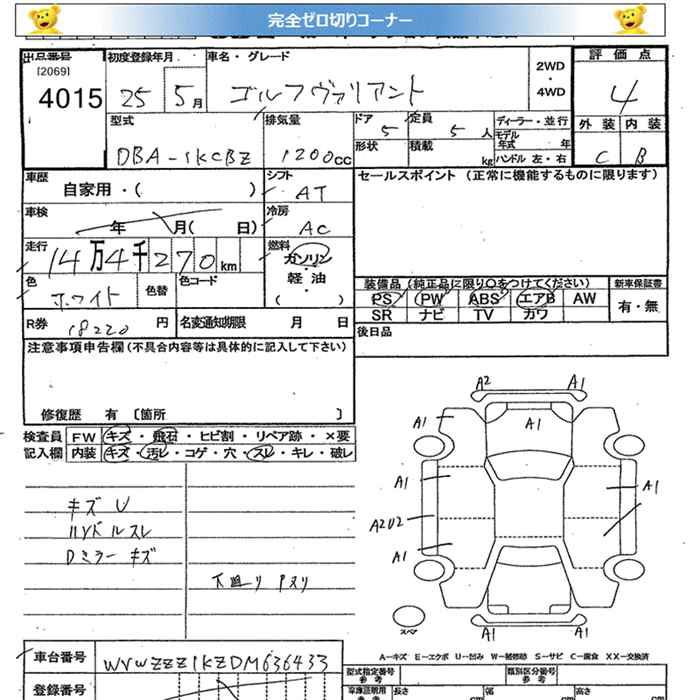 完全ゼロ切りコーナー
出品番号
[2069]
4015
初度登録年月
25 5月
車名・グレード
ゴルフヴァリアント
2WD
・
4WD
評価点
4
外装 内装
C B
型式
DBA-1KCBZ
排気量
1200cc
ドア
5
定員
5人
形状
積載
kg
ディーラー・並行
モデル年式 年
ハンドル 左・右
車歴
自家用・( )
シフト
AT
車検
年 月( 日)
冷房
AC
走行
14万4千270km
燃料
ガソリン
・
軽油
( )
色
ホワイト
色替
色コード
R券
18220円
名変通知期限 月 日
セールスポイント (正常に機能するものに限ります)
装備品 (純正品に限り○をつけてください)
PS PW ABS エアB AW
SR ナビ TV カワ
新車保証書
有・無
後日品
注意事項申告欄(不具合内容等は具体的に記入して下さい)
修復歴 有 〔箇所 〕
検査員記入欄
FW キズ・飛石・ヒビ割・リペア跡・×要
内装 キズ・汚レ・コゲ・穴・スレ・キレ・破レ
キズ U
ハンドルスレ
Dミラーキズ
下廻りPスリ
A2 A1
A1 A1
A1 A1
A2U2
A1
A1 A1
スペア
A-キズ E-エクボ U-凹み W-補修跡 S-サビ C-腐食 XX-交換済
車台番号
WVWZZZ1KZDM636433
登録番号
型式指定番号
参考
類別区分番号
参考
車庫証明用
参考
長さ cm
幅 cm
高さ cm